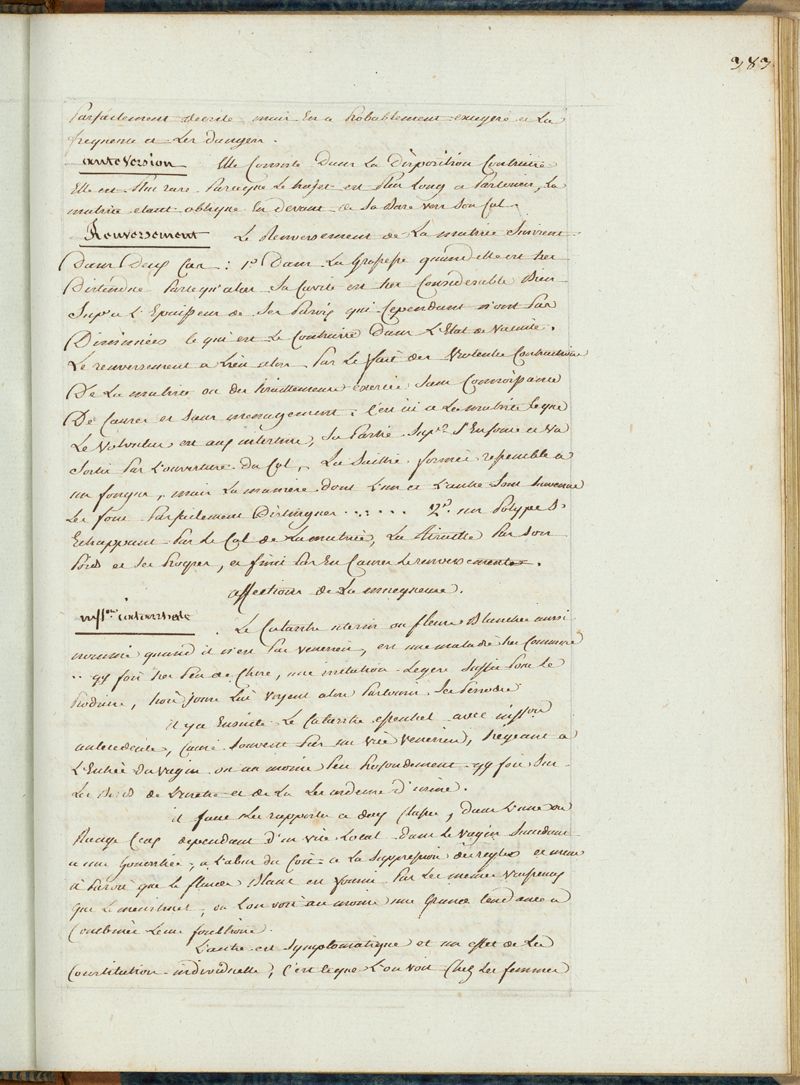 383
parfaitement decrite mais En a probablement exagéré a La
frequence et Les dangers.
anteversion Elle Consiste Dans La disposition Contraire
Elle est plus rare parceque le trajet est plus Long a parcourir, La
matrice etant oblique En devant de Sa Base vers Son Col.
Renversement Le Renversement de La matrice Survient
Dans Deux Cas : 1° Dans La Grossesse quand elle est tres
Distendue parcequ'alors Sa Cavité est tres Considerable Bien
Sup.r a L'Epaisseur de Ses parois qui Cependant n'ont pas
Diminuées ce qui est le Contraire Dans L'Etat de vacuité.
Le renversement a Lieu alors par Le fait des violentes Contractions
De La matrice ou des tiraillemens exercés Sans Connoissance
De Causes et Sans menagement : C'est ici a La matrice ce que
Le Volvulus est aux intestins, Sa partie Sup.re S'Enfonce et va
Sortir par L'ouverture du Col, La Saillie formée ressemble a
un fongus, mais La maniere dont L'un et L'autre Sont Survenus
Les font parfaitement Distinguer ...... 2° un polype S'
Echappant par Le Col de La matrice, La Tiraille par Son
poids et Ses progrès, et finit par En Causer Le renversement.
affections de La muqueuse.
inff.on catarrhale. Le Catarrhe uterin ou fleurs Blanches aussi
nommé quand il n'est pas venerien, est une maladie tres Commune
.. qq fois tres peu de Chose, une irritation Legere Suffit pour le
produire, trois jours Lui voyent alors parcourir Ses periodes
il y a Ensuite Le Catarrhe essentiel avec inff.on
antecedente, Causé Souvent par un vice venerien, Siegeant a
L'Entrée du vagin ou au moins peu profondement qq fois Sur
Les Bords de L'uretre et de La Les ardeurs d'urine.
il faut Les rapporter a deux Classes, dans L'une on
Range Ceux dependant d'un vice Local dans Le vagin Succedant
a une Gonorrhée, a L'abus du Coït a La Suppression des regles et meme
il paroit que Le fluide Blanc est fourni par Les memes vaisseaux
que Le menstruel, ou L'on voit au moins une Grande tendance a
Combiner Leurs fonctions.
L'autre est Symptomatique et un effet de La
Constitution individuelle, C'est ce que L'on voit Chez Les femmes